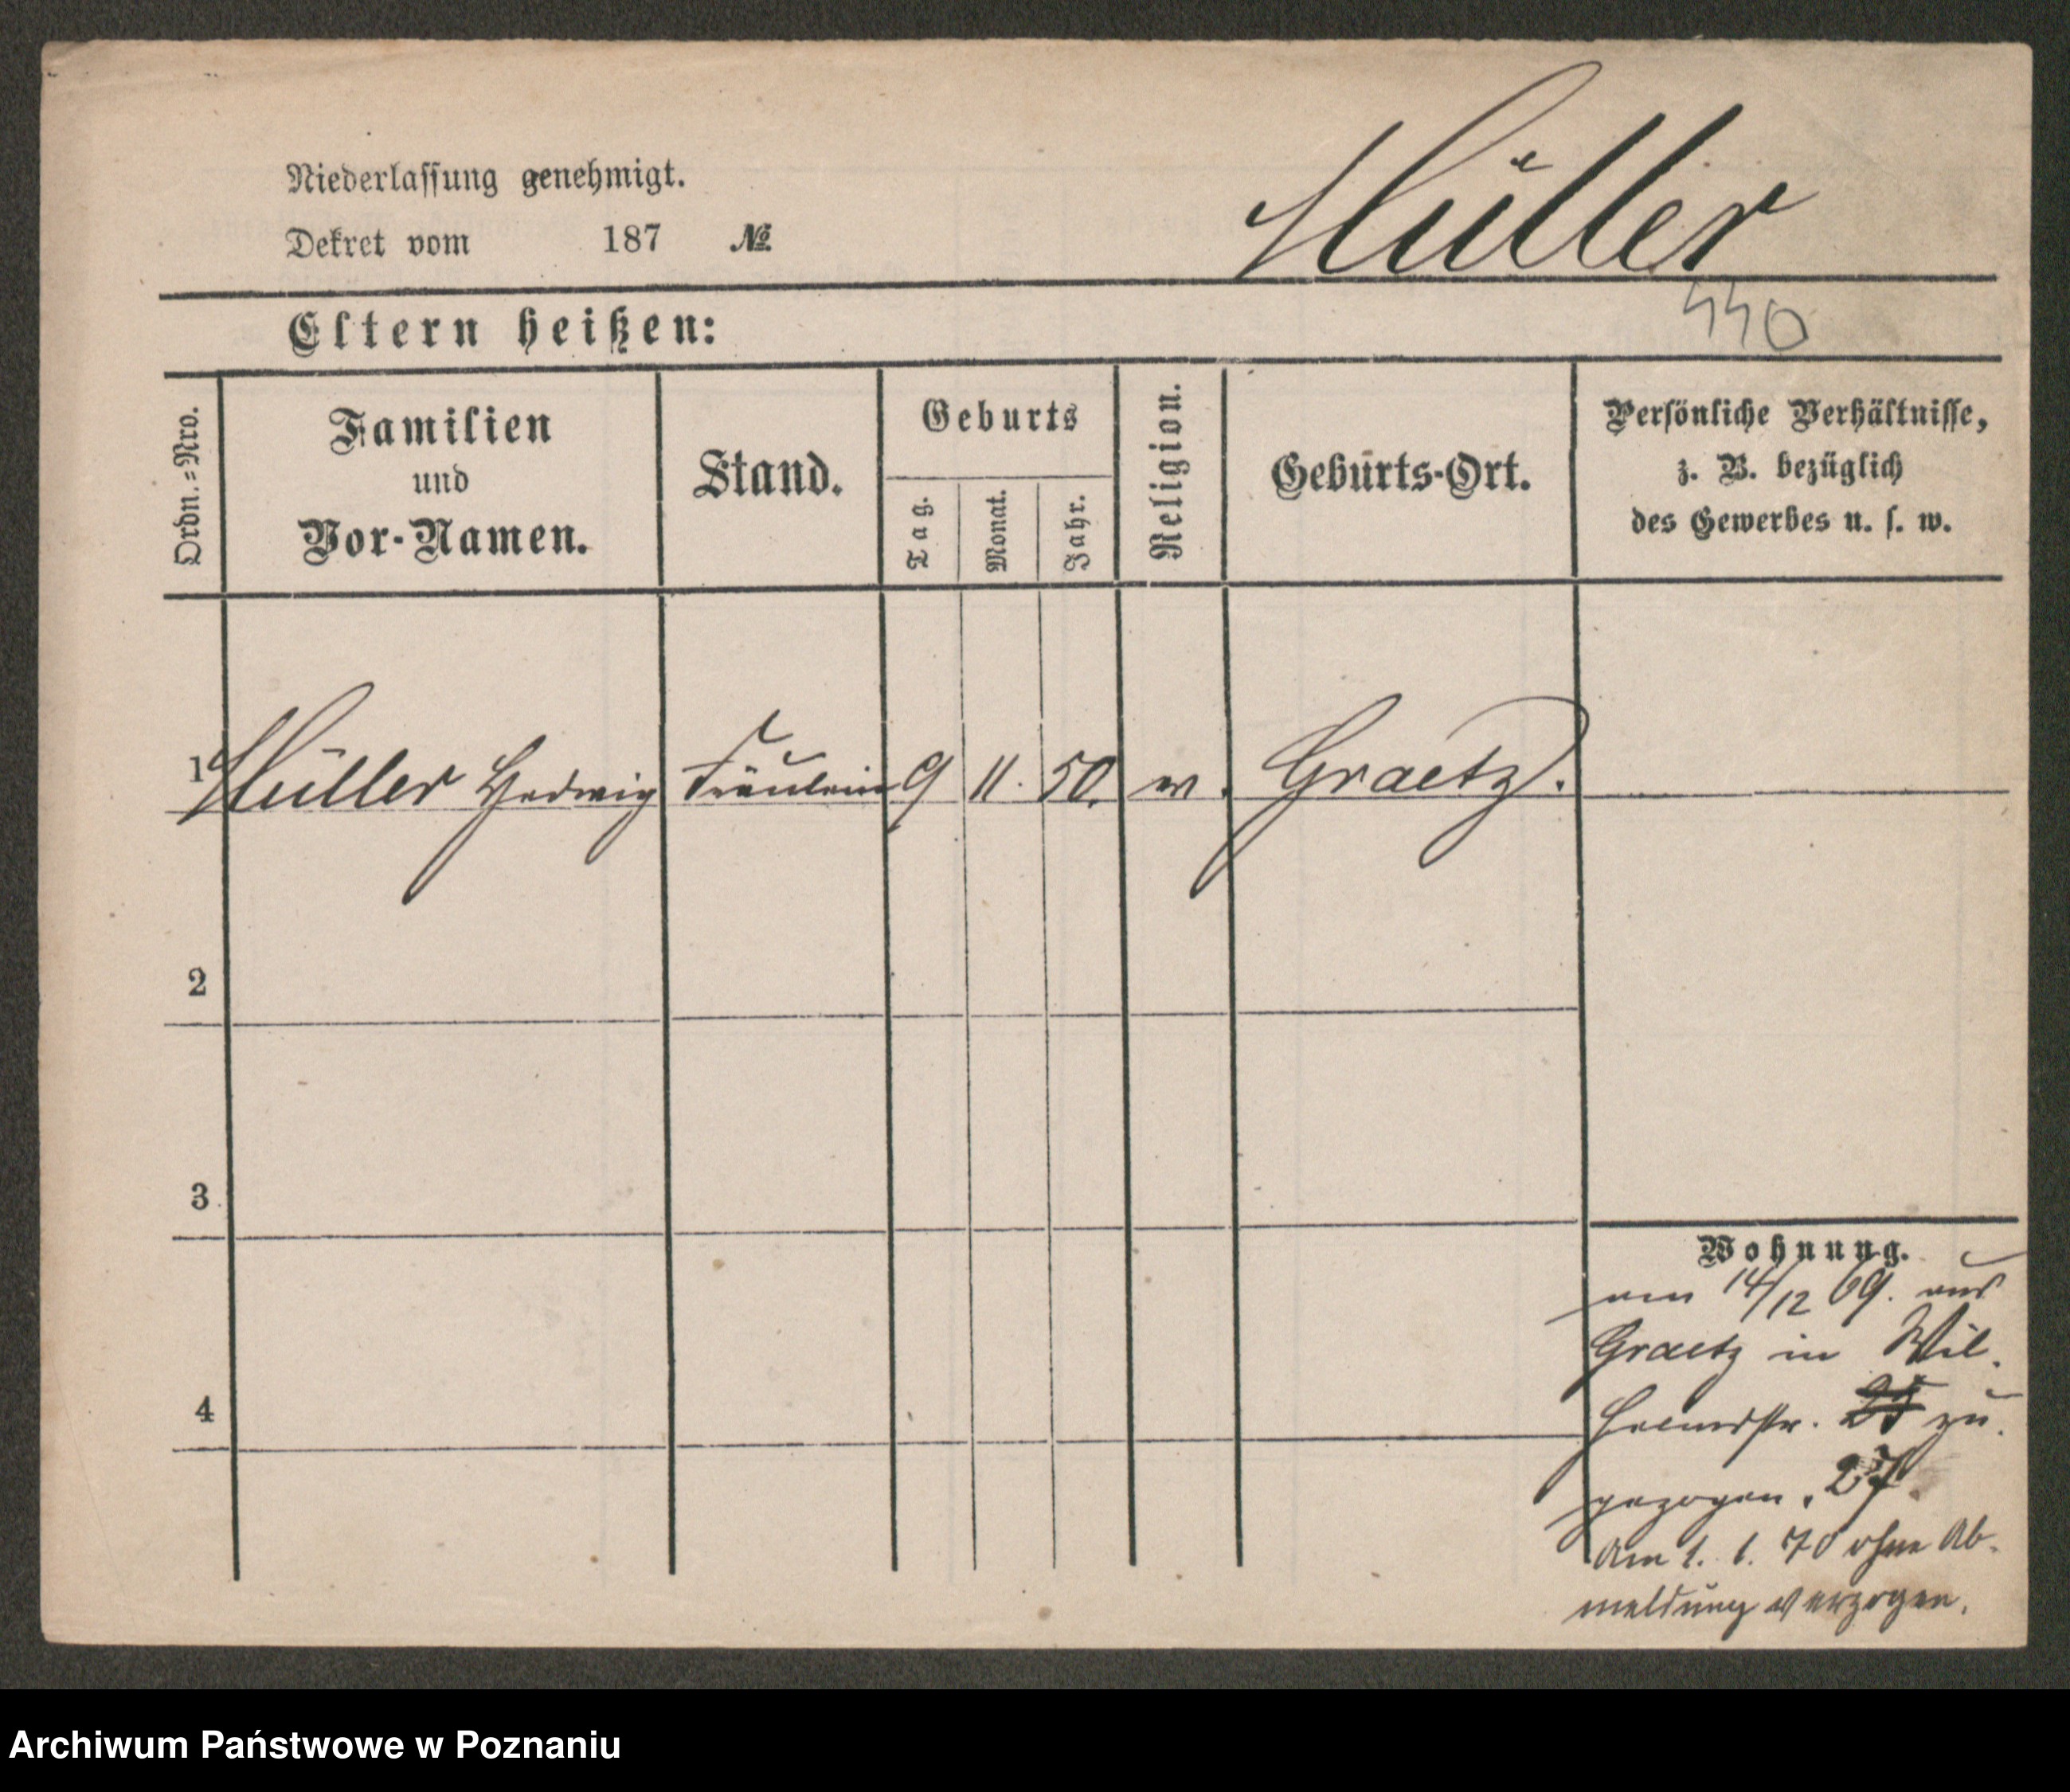 Niederlassung genehmigt.
Dekret vom 187 №
Hüller
440
Eltern heißen:
Ordn.=Nro.
Familien
und
Vor-Namen.
Stand.
Geburts
Tag.
Monat.
Jahr.
Religion.
Geburts-Ort.
Persönliche Verhältnisse,
z. B. bezüglich
des Gewerbes u. s. w.
1 Hüller Hedwig Fräulein 9 11. 50. Graetz.
2
3
4
Wohnung.
am 14/12 69. aus
Graetz in Wil.
helmstr. zu.
gezogen. 27.
Am 1. 1. 70 ohne Ab-
meldung verzogen.
Archiwum Państwowe w Poznaniu